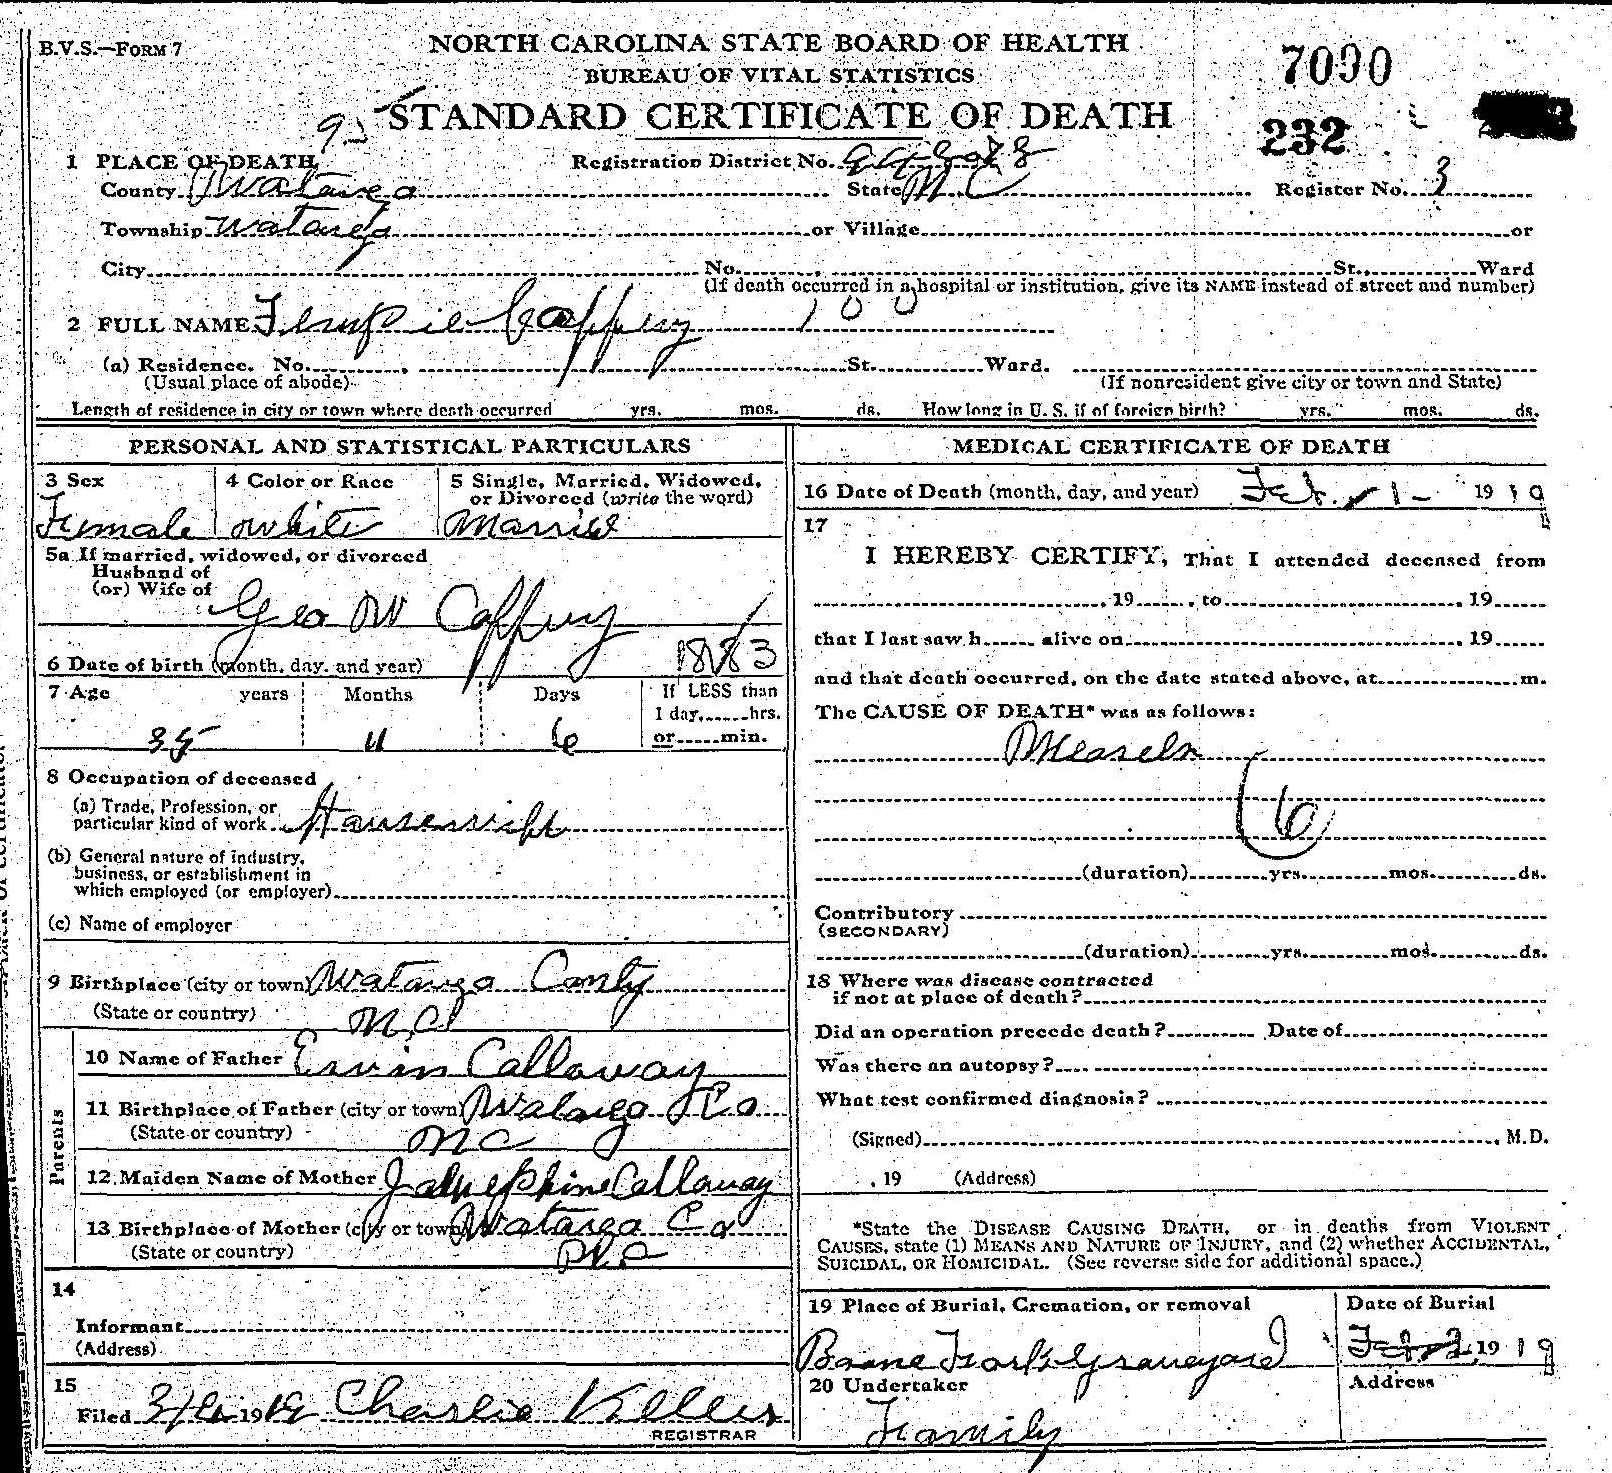 B.V.S.—FORM 7
NORTH CAROLINA STATE BOARD OF HEALTH
BUREAU OF VITAL STATISTICS
STANDARD CERTIFICATE OF DEATH
7090
232
95
1 PLACE OF DEATH Registration District No.
County Watauga State N C Register No. 3
Township Watauga or Village or
City No. St., Ward
(If death occurred in a hospital or institution, give its NAME instead of street and number)
2 FULL NAME Tempie Coffey 100
(a) Residence. No. St. Ward.
(Usual place of abode) (If nonresident give city or town and State)
Length of residence in city or town where death occurred yrs. mos. ds. How long in U. S. if of foreign birth? yrs. mos. ds.
PERSONAL AND STATISTICAL PARTICULARS
3 Sex 4 Color or Race 5 Single, Married, Widowed, or Divorced (write the word)
Female White Married
5a If married, widowed, or divorced
Husband of
(or) Wife of
Geo W Coffey
6 Date of birth (month, day, and year) 1883
7 Age years Months Days If LESS than
1 day, hrs.
35 11 6 or min.
8 Occupation of deceased
(a) Trade, Profession, or
particular kind of work Housewife
(b) General nature of industry,
business, or establishment in
which employed (or employer)
(c) Name of employer
9 Birthplace (city or town) Watauga Conty
(State or country) N.C
10 Name of Father Ervin Callaway
Parents
11 Birthplace of Father (city or town) Watauga Co
(State or country) N C
12 Maiden Name of Mother Callaway
13 Birthplace of Mother (city or town) Watauga Co
(State or country) N.C
14
Informant
(Address)
15
Filed 19 19 Charlie Keller
REGISTRAR
MEDICAL CERTIFICATE OF DEATH
16 Date of Death (month, day, and year) Feb. 1 - 1919
17
I HEREBY CERTIFY, That I attended deceased from
, 19 , to , 19
that I last saw h alive on , 19
and that death occurred, on the date stated above, at m.
The CAUSE OF DEATH* was as follows:
Measels
6
(duration) yrs. mos. ds.
Contributory
(SECONDARY)
(duration) yrs. mos. ds.
18 Where was disease contracted
if not at place of death?
Did an operation precede death? Date of
Was there an autopsy?
What test confirmed diagnosis?
(Signed) , M.D.
, 19 (Address)
*State the DISEASE CAUSING DEATH, or in deaths from VIOLENT
CAUSES, state (1) MEANS AND NATURE OF INJURY, and (2) whether ACCIDENTAL,
SUICIDAL, OR HOMICIDAL. (See reverse side for additional space.)
19 Place of Burial, Cremation, or removal Date of Burial
Boone Fork Graveyard Feb. 2, 1919
20 Undertaker Address
Family